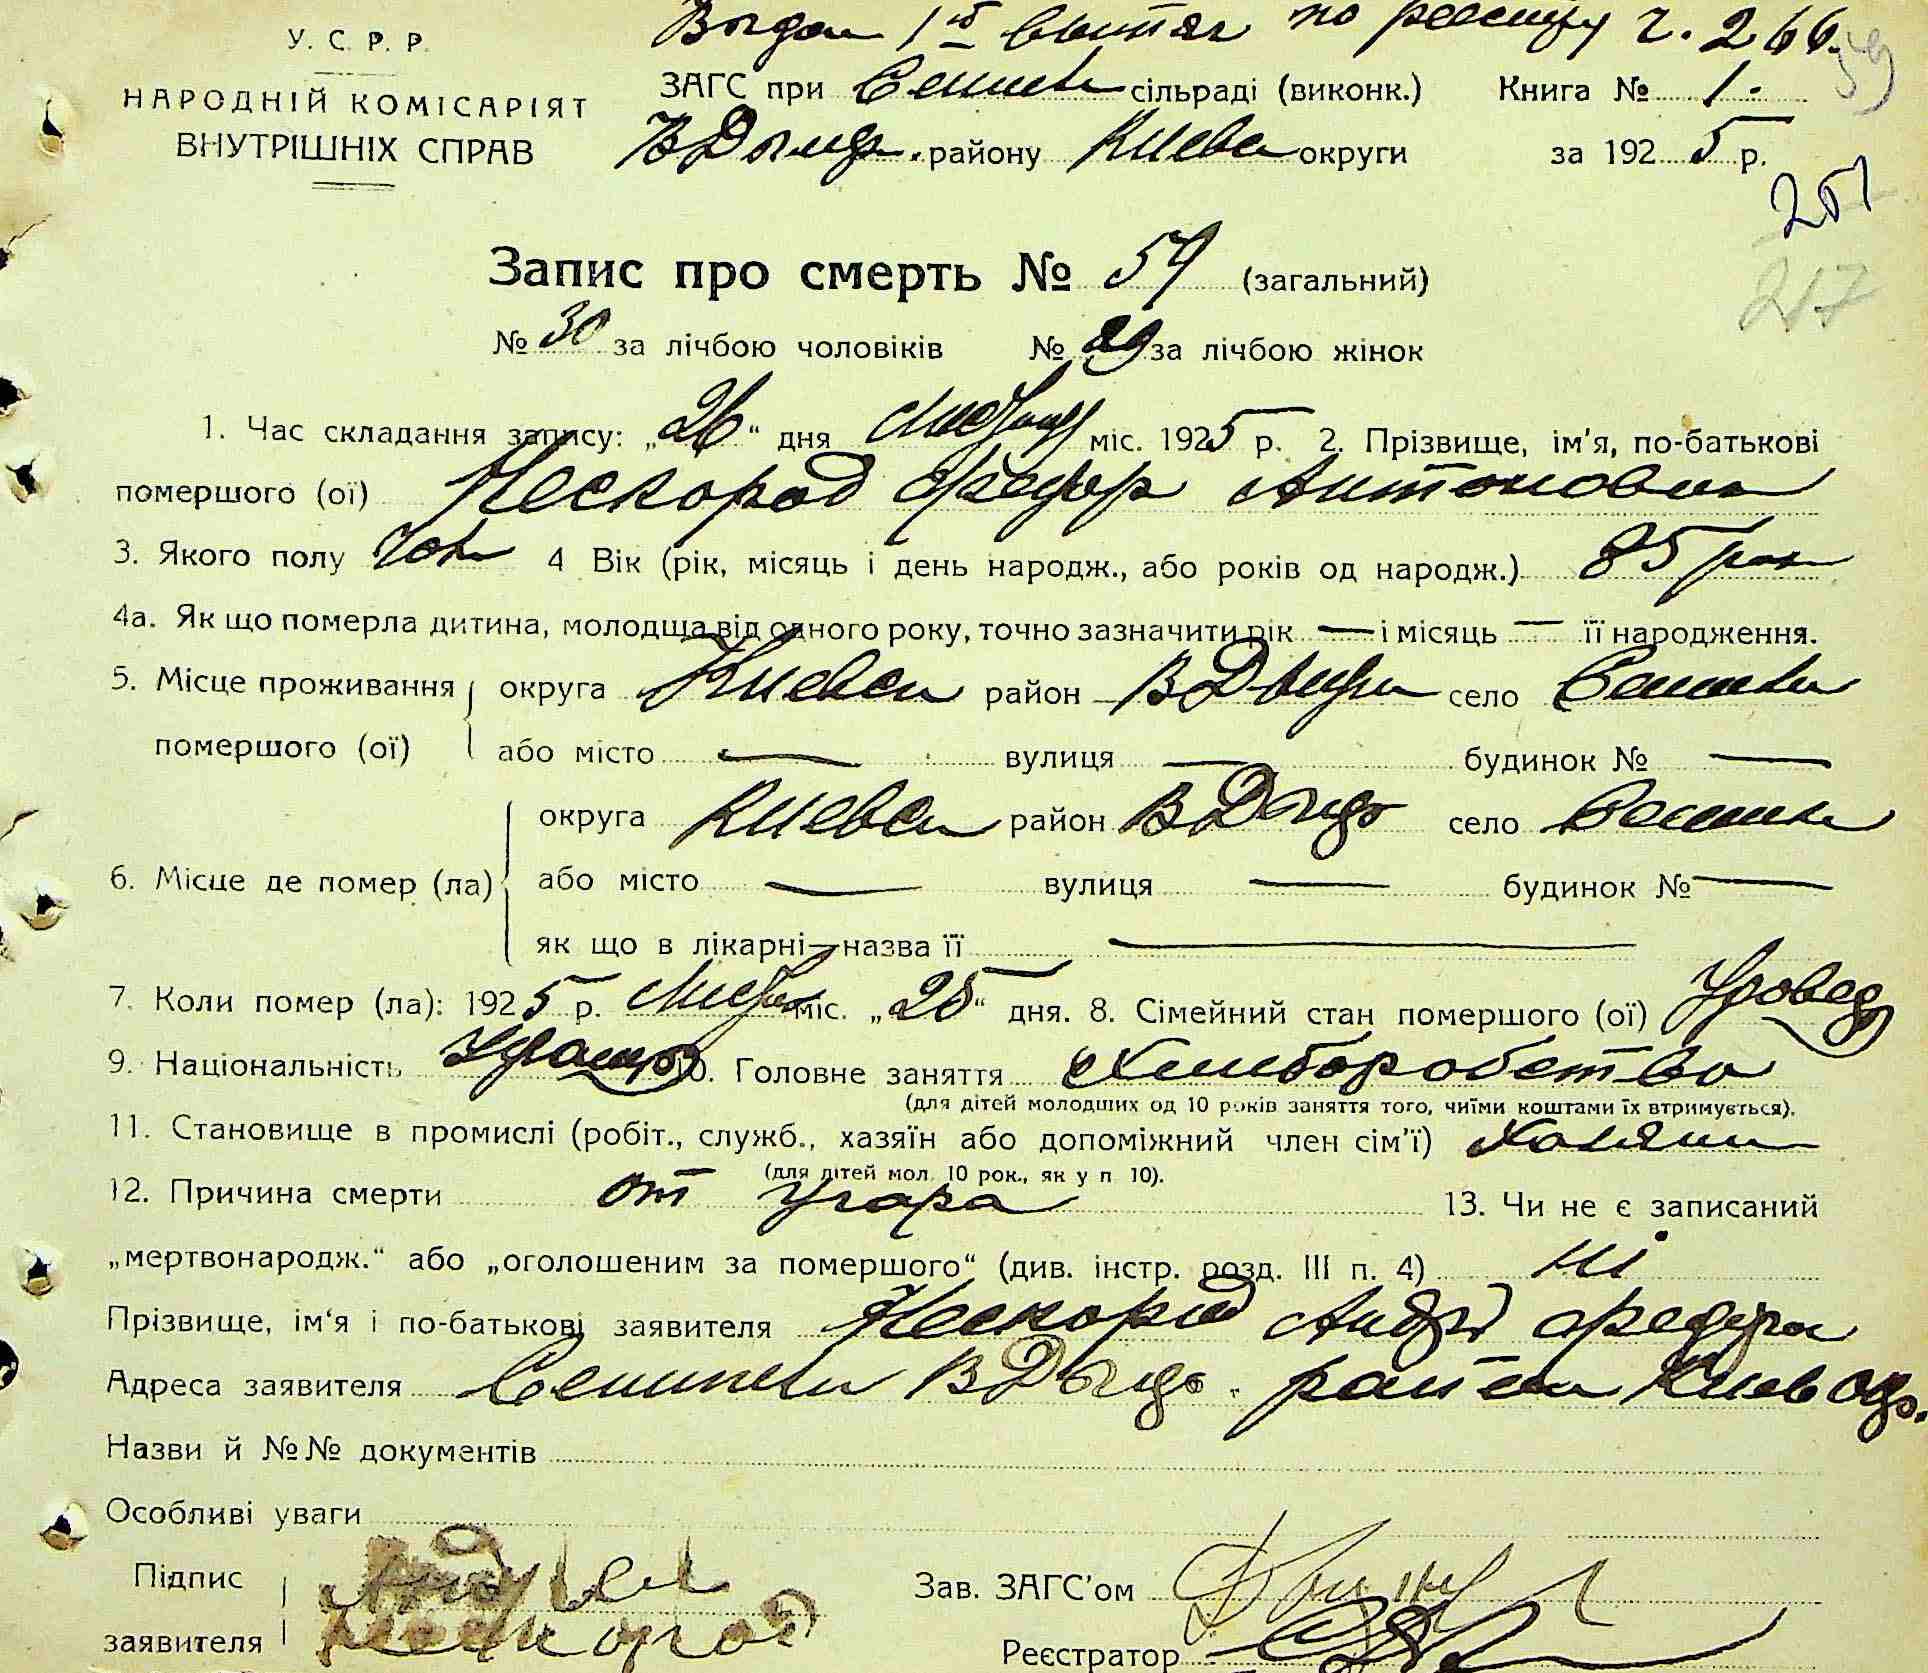 Выдан 1й вытяг по реестру г. 266.
У. С. Р. Р.
НАРОДНІЙ КОМІСАРІЯТ
ВНУТРІШНІХ СПРАВ
ЗАГС при сільраді (виконк.) Книга № 1.
В Дымер. району Киевс округи за 1925 р.
251
217
Запис про смерть № 59 (загальний)
№ 30 за лічбою чоловіків № 29 за лічбою жінок
1. Час складання запису: „26“ дня міс. 1925 р. 2. Прізвище, ім'я, по-батькові
помершого (ої) Нескород Федор Антонович
3. Якого полу Чол 4 Вік (рік, місяць і день народж., або років од народж.) 85 рок
4а. Як що померла дитина, молодща від одного року, точно зазначити рік — і місяць — її народження.
5. Місце проживання округа Киевск район В Дымер село
помершого (ої) або місто — вулиця — будинок № —
округа Киевск район В Дымер село
6. Місце де помер (ла) або місто — вулиця — будинок № —
як що в лікарні—назва її —
7. Коли помер (ла): 1925 р. міс. „25“ дня. 8. Сімейний стан помершого (ої)
9. Національність 10. Головне заняття Хлиборобство
(для дітей молодших од 10 років заняття того, чиїми коштами їх втримується).
11. Становище в промислі (робіт., служб., хазяїн або допоміжний член сім'ї) Хазяин
(для дітей мол. 10 рок., як у п 10).
12. Причина смерти от угара 13. Чи не є записаний
„мертвонародж.“ або „оголошеним за помершого“ (див. інстр. розд. III п. 4) ні
Прізвище, ім'я і по-батькові заявителя Нескород Андрій
Адреса заявителя В Дымер. район Киев окр.
Назви й №№ документів
Особливі уваги
Підпис Андрей Зав. ЗАГС'ом
заявителя Нескород Реєстратор